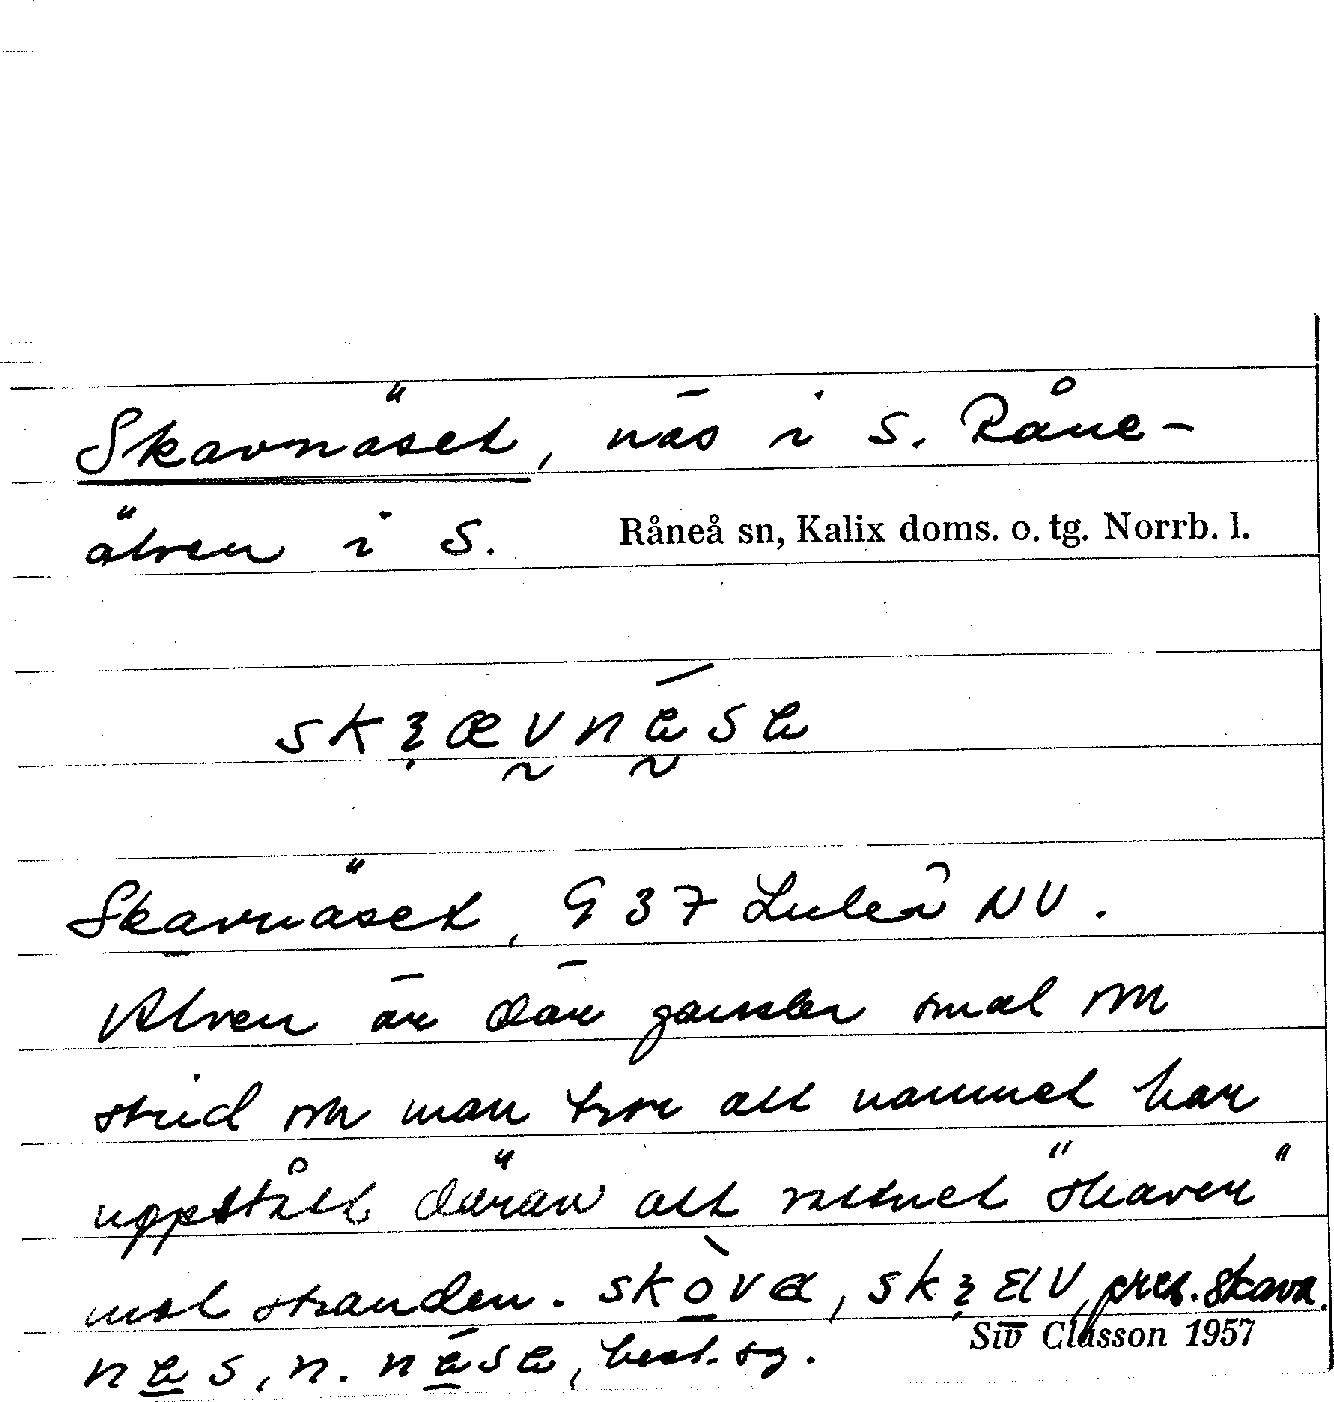 Skavnäset, näs i S. Råne-
älven i S. Råneå sn, Kalix doms. o. tg. Norrb. l.
Skavnäset, G 37 Luleå NV.
Älven är där ganska smal och
strid och man tror att namnet har
uppstått därav att vattnet "skaver"
mot stranden. skòva, pres. skava.
n. best. sg.
Siw Classon 1957